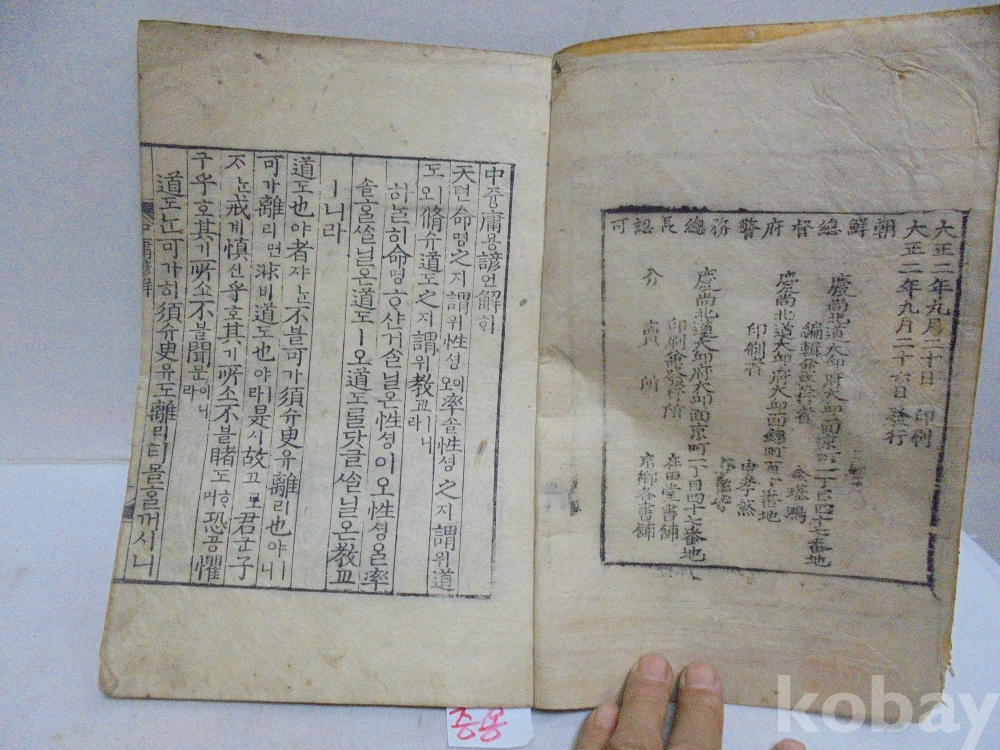 大正二年九月二十日 印刷
大正二年九月二十六日 發行
朝鮮總督府警務總長認可
慶尚北道大邱府大邱面京町一丁目四十七番地
編輯兼發行者 金璂鴻
慶尚北道大邱府大邱面 番地
印刷者
慶尚北道大邱府大邱面京町一丁目四十七番地
印刷兼發行所 在田堂書鋪
分賣所 京鄉各書鋪
中즁庸용諺언解ᄒᆡ
天텬命명之지謂위性셩이오率솔性셩之지謂위道
도ㅣ오脩슈道도之지謂위教교ㅣ니라
하ᄂᆞᆯ히命명ᄒᆞ샨거슬닐온性셩이오性셩을率
솔홀쓸닐온道도ㅣ오道도를닷글쓸닐온教교
ㅣ니라
道도也야者쟈ᄂᆞᆫ不블可가須슈臾유離리也야ㅣ니
可가離리면非비道도也야ㅣ라是시故고로君군子
ᄌᆞᄂᆞᆫ戒계慎신乎호其기所소不블睹도ᄒᆞ며恐공懼
구乎호其기所소不블聞문이니라
道도ᄂᆞᆫ可가히須슈臾유도離리티몯ᄒᆞᆯ꺼시니
中庸諺解
중용
kobay